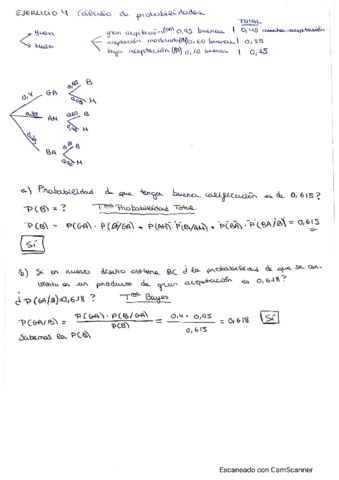 EJERCICIO 4 Cálculo de probabilidades
TOTAL
Buena
Mala
gran aceptación (GA) 0,95 buenas | 0,40 mucha aceptación
aceptación moderada (AN) 0,60 buenas | 0,35
baja aceptación (BA) 0,10 buenas | 0,25
0,4 GA 0,95 B
M
AN 0,60 B
M
BA B
M
a) Probabilidad de que tenga buena calificación es de 0,615?
P(B) = ? Tma Probabilidad Total
P(B) = P(GA) · P(B/GA) + P(AN) · P(B/AN) + P(BA) · P(BA/B) = 0,615
Sí
b) Si un nuevo diseño obtiene BC ¿la probabilidad de que se convierta en un producto de gran aceptación es 0,618?
¿P(GA/B)=0,618? Tma Bayes
P(GA/B) = P(GA) · P(B/GA) / P(B) = 0,4 · 0,95 / 0,615 = 0,618 Sí
Sabemos la P(B)
Escaneado con CamScanner